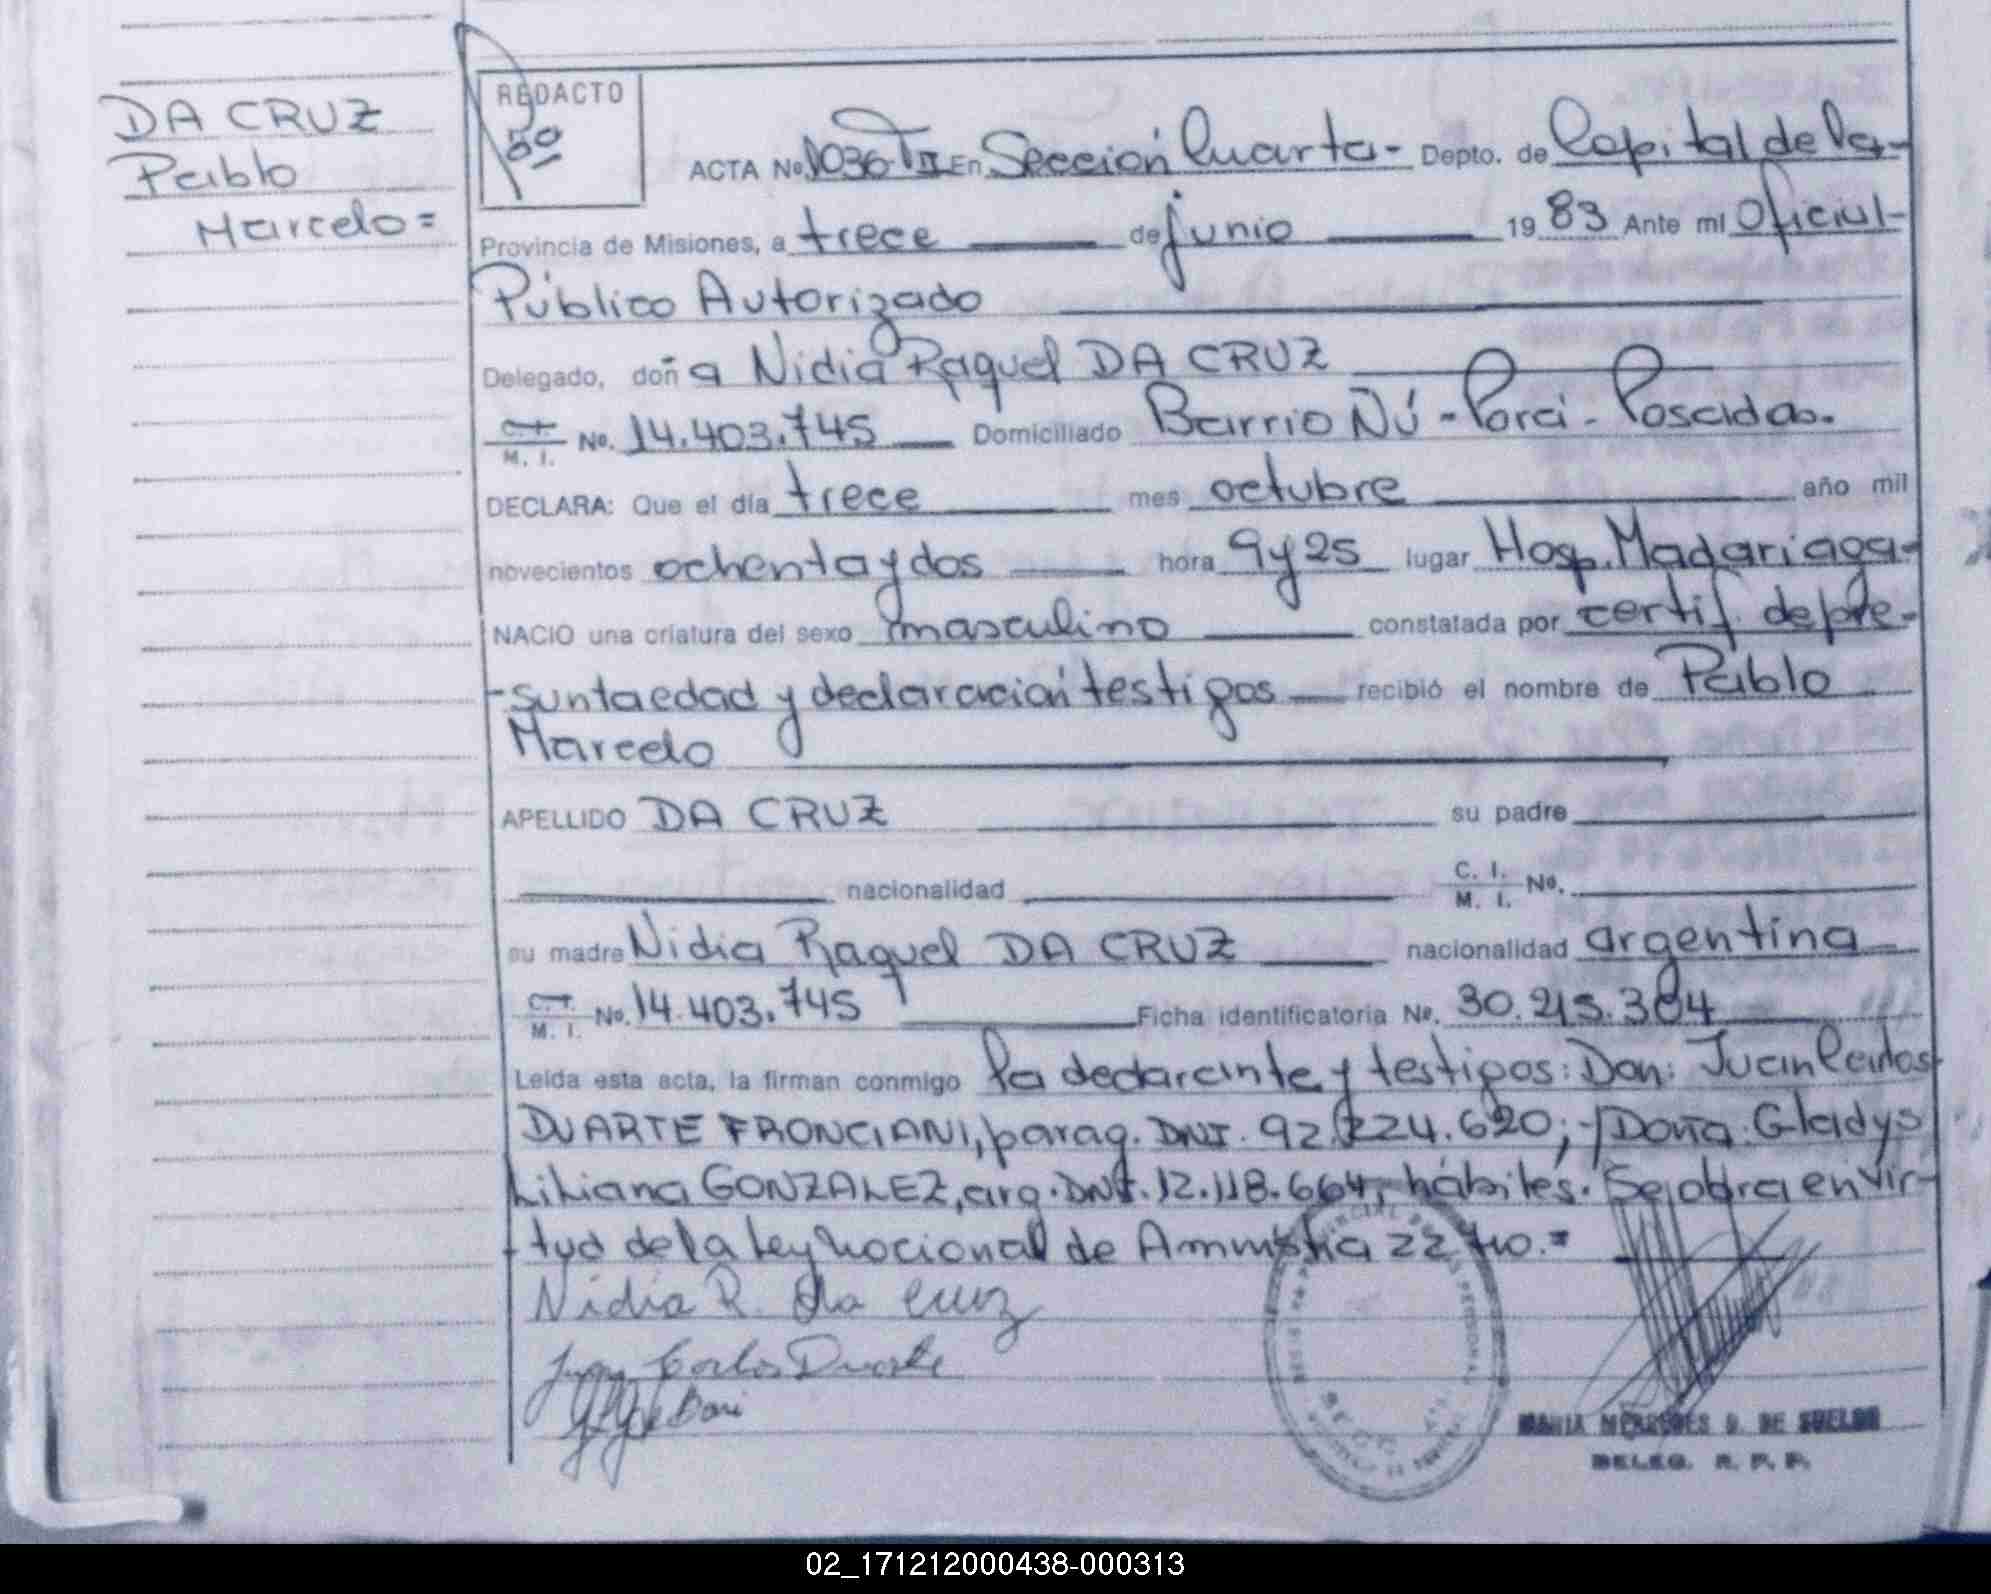 DA CRUZ
Pablo
Marcelo=
REDACTO
50
ACTA No. 1036 TII En Sección Cuarta- Depto. de Capital de la-
Provincia de Misiones, a trece de junio 1983 Ante mí Oficial-
Público Autorizado
Delegado, doña Nidia Raquel DA CRUZ
C. I. M. I. No. 14.403.745 Domiciliado Barrio Ñú-Porá-Posadas.
DECLARA: Que el día trece mes octubre año mil
novecientos ochenta y dos hora 9 y 25 lugar Hosp. Madariaga-
NACIO una criatura del sexo masculino constatada por certif. de pre-
-sunta edad y declaración testigos recibió el nombre de Pablo
Marcelo
APELLIDO DA CRUZ su padre
nacionalidad C. I. M. I. No.
su madre Nidia Raquel DA CRUZ nacionalidad argentina
C. I. M. I. No. 14.403.745 Ficha identificatoria No. 30.215.384
Leída esta acta, la firman conmigo la declarante y testigos: Don: Juan Carlos
DUARTE FRONCIANI, parag. DNI. 92.224.620; -/Doña: Gladys
Liliana GONZALEZ, arg. DNI. 12.118.664, hábiles. Se labra en vir-
-tud de la Ley Nacional de Amnistía 22
Nidia R. da Cruz
Juan Carlos Duarte
MARIA MERCEDES D. DE
DELEG. R. P. P.
02_171212000438-000313